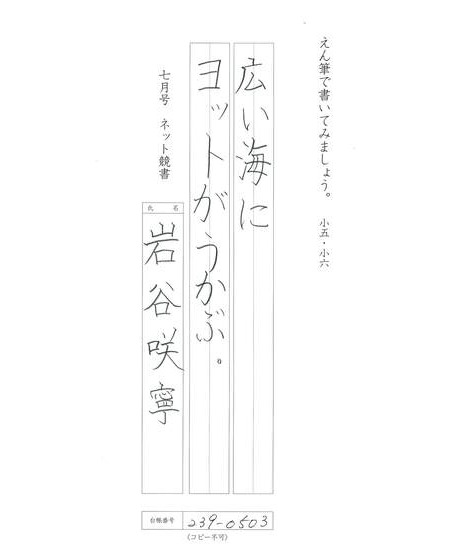 えん筆で書いてみましょう。 小五・小六
広い海に
ヨットがうかぶ。
七月号 ネット競書
氏 名
岩谷咲寧
台帳番号 239-0503
(コピー不可)